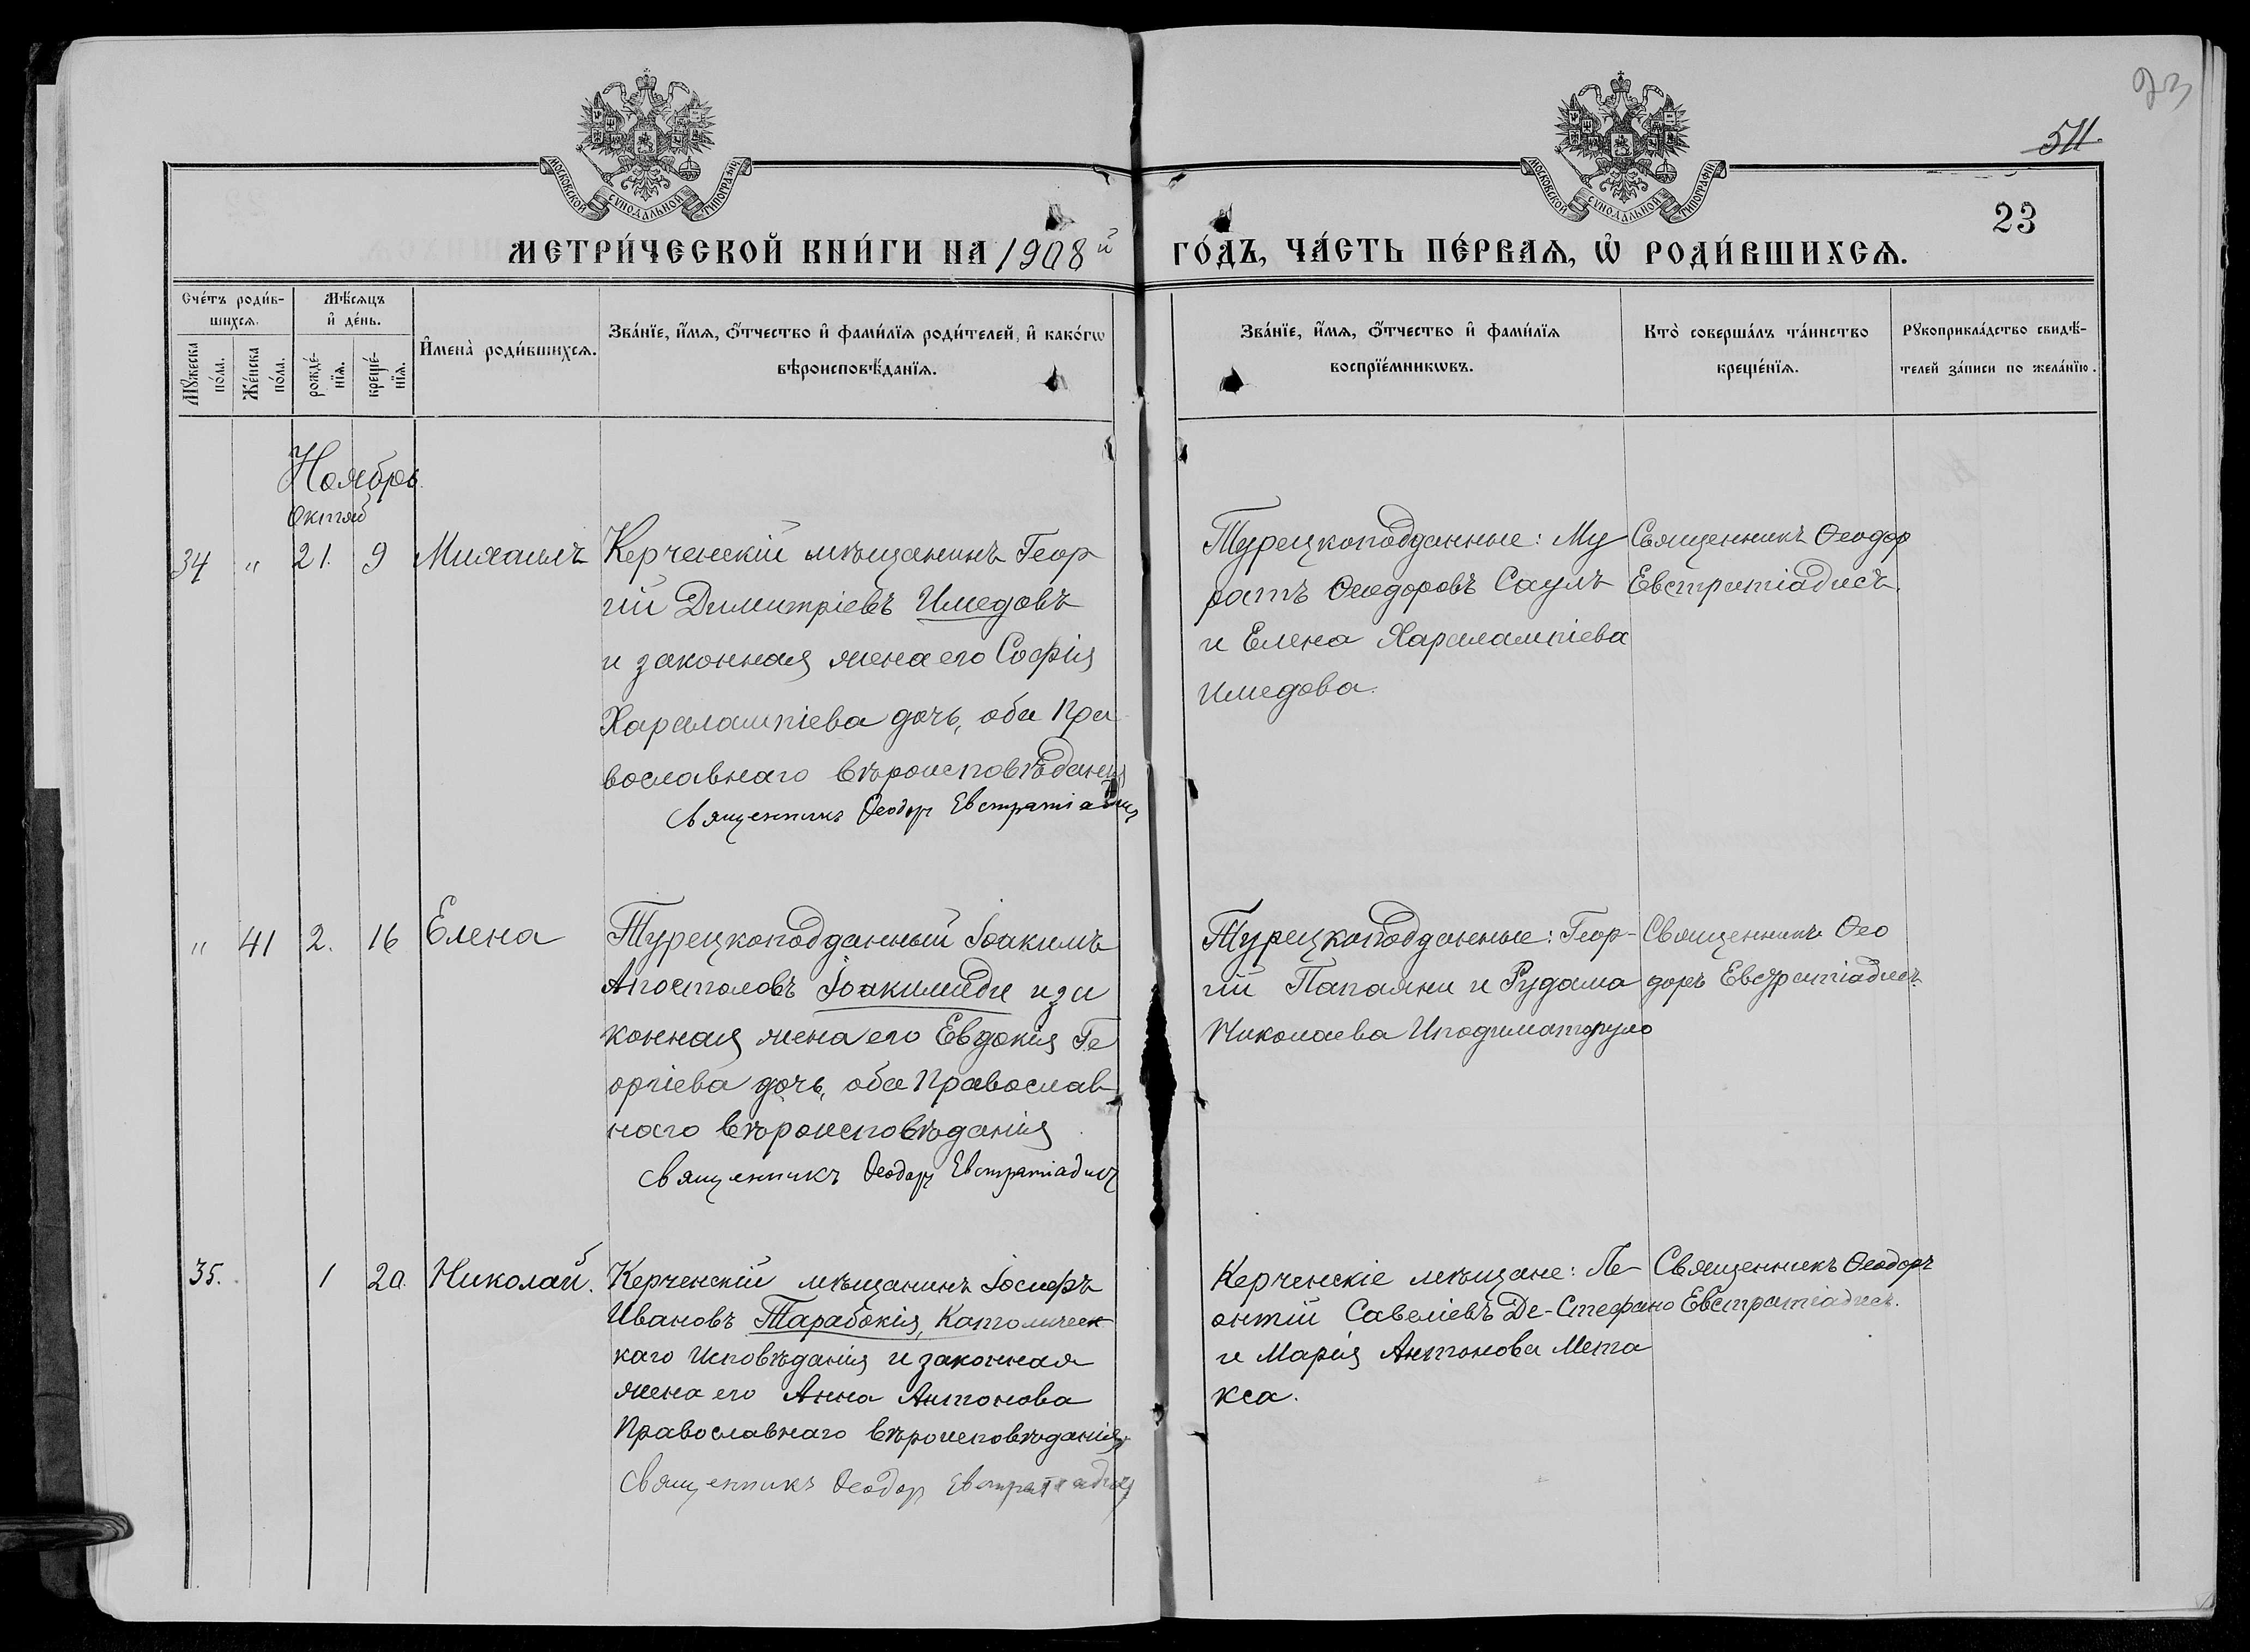 23
511.
МОСКОВСКОЙ СѴНОДАЛЬНОЙ ТИПОГРАФІИ
МОСКОВСКОЙ СѴНОДАЛЬНОЙ ТИПОГРАФІИ
23
МЕТРИ́ЧЕСКОЙ КНИ́ГИ НА 1908й ГО́ДЪ, ЧА́СТЬ ПЕ́РВАѦ, Ѡ҆ РОДИ́ВШИХСѦ.
Сче́тъ роди́в-
шихсѧ.
Мꙋ́жеска по́ла.
Же́нска по́ла.
Мѣ́сѧцъ
и҆ де́нь.
рожде́-
нїѧ.
креще́-
нїѧ.
И҆мена̀ роди́вшихсѧ.
Зва́нїе, и҆́мѧ, ѻ҆́тчество и҆ фами́лїѧ роди́телей, и҆ како́гѡ
вѣроисповѣ́данїѧ.
Зва́нїе, и҆́мѧ, ѻ҆́тчество и҆ фами́лїѧ
воспрїе́мникѡвъ.
Кто̀ соверша́лъ та́инство
креще́нїѧ.
Рꙋкоприкла́дство свидѣ́-
телей за́писи по жела́нїю.
Ноябрь
Октяб
34 " 21. 9 Михаилъ
Керченскій мѣщанинъ Геор
гій Димитріевъ Имедовъ
и законная жена его Софія
Харалампіева дочь, оба Пра
вославнаго вѣроисповѣданія
Священникъ Ѳеодоръ Евстратіадисъ
Турецкоподданные: Му
ратъ Ѳеодоровъ Саулъ
и Елена Харалампіева
Имедова.
Священникъ Ѳеодор
Евстратіадисъ.
" 41 2. 16 Елена
Турецкоподданный Іоакимъ
Апостоловъ Іоакимиди и за
конная жена его Евдокія Ге
оргіева дочь, оба Православ
наго вѣроисповѣданія
Священникъ Ѳеодоръ Евстратіадисъ
Турецкоподданные: Геор-
гій Папаяни и Рудама
Николаева
Священникъ Ѳео
доръ Евстратіадисъ.
35. 1 20. Николай.
Керченскій мѣщанинъ Іосифъ
Ивановъ Тарабокія, Католическ
каго Исповѣданія и законная
жена его Анна Антонова
Православнаго вѣроисповѣданія.
Священникъ Ѳеодор Евстратіадисъ
Керченскіе мѣщане: Ле-
онтій Савеліевъ Де-Стефано
и Марія Антонова Мета
кса.
Священникъ Ѳеодоръ
Евстратіадисъ.